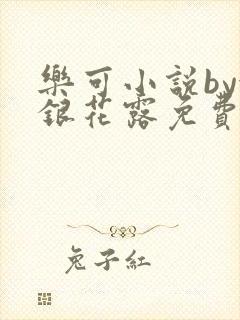 樂可小說by
銀花露免費
兔子紅